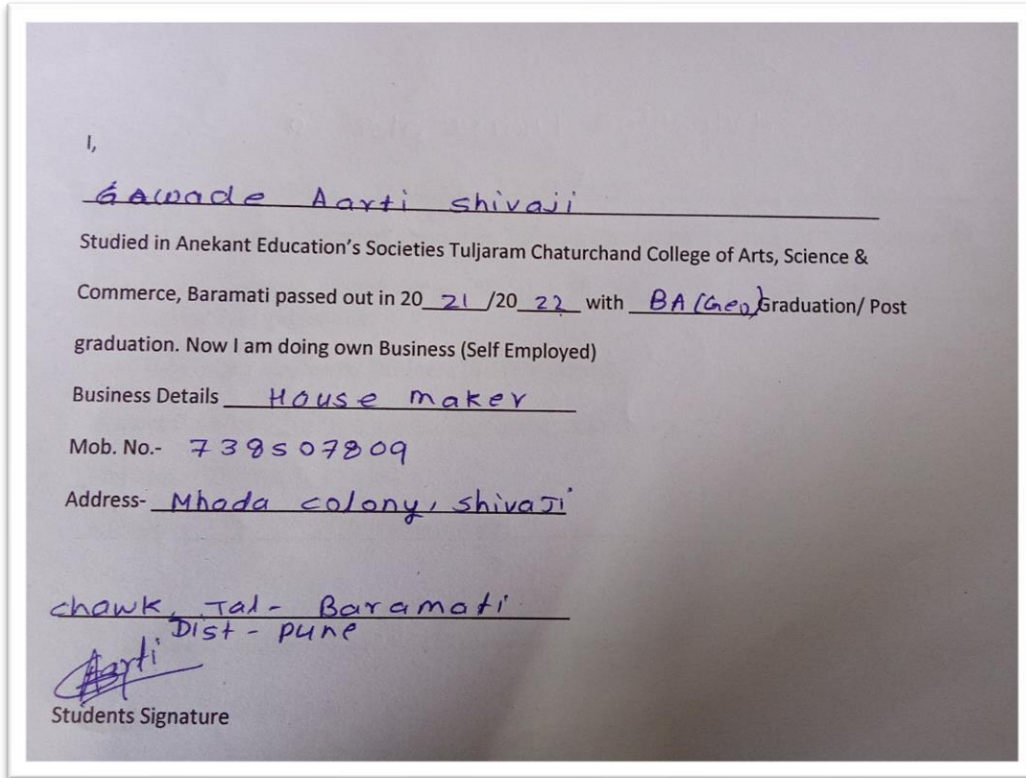 I,
Gawade Aarti shivaji
Studied in Anekant Education's Societies Tuljaram Chaturchand College of Arts, Science &
Commerce, Baramati passed out in 20 21 /20 22 with BA (Geo) Graduation/ Post
graduation. Now I am doing own Business (Self Employed)
Business Details House maker
Mob. No.- 738507809
Address- Mhada colony, shivaJi
chawk, Tal- Baramati
Dist - pune
Aarti
Students Signature